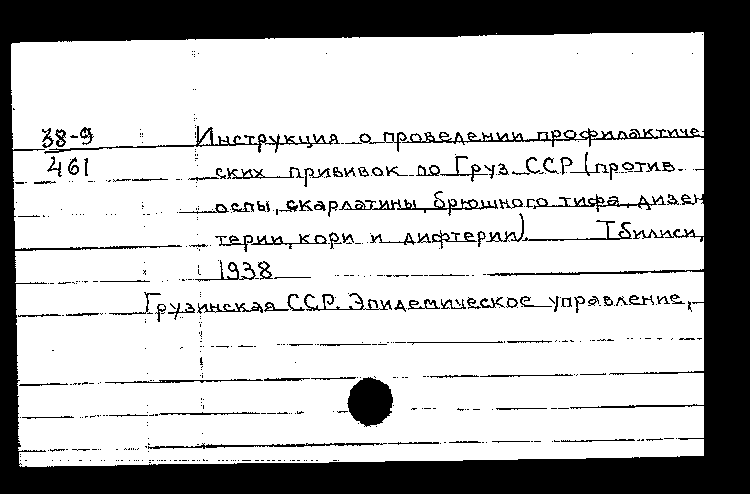 38-9
461
Инструкция о проведении профилактиче
ских прививок по Груз. ССР (против
оспы, скарлатины, брюшного тифа, дизен
терии, кори и дифтерии). Тбилиси,
1938
Грузинская ССР. Эпидемическое управление,